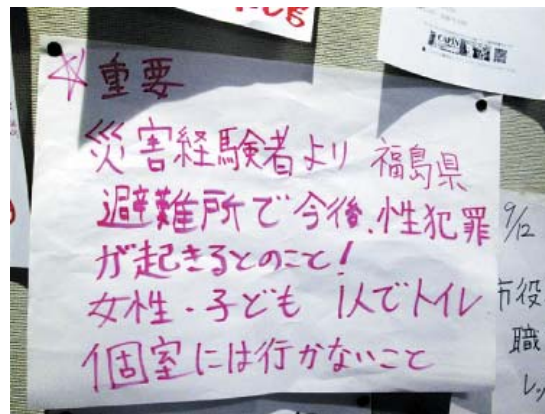 ☆重要
災害経験者より 福島県
避難所で今後、性犯罪
が起きるとのこと！
女性・子ども 1人でトイレ
個室には行かないこと
9/12
市役
職
レッ